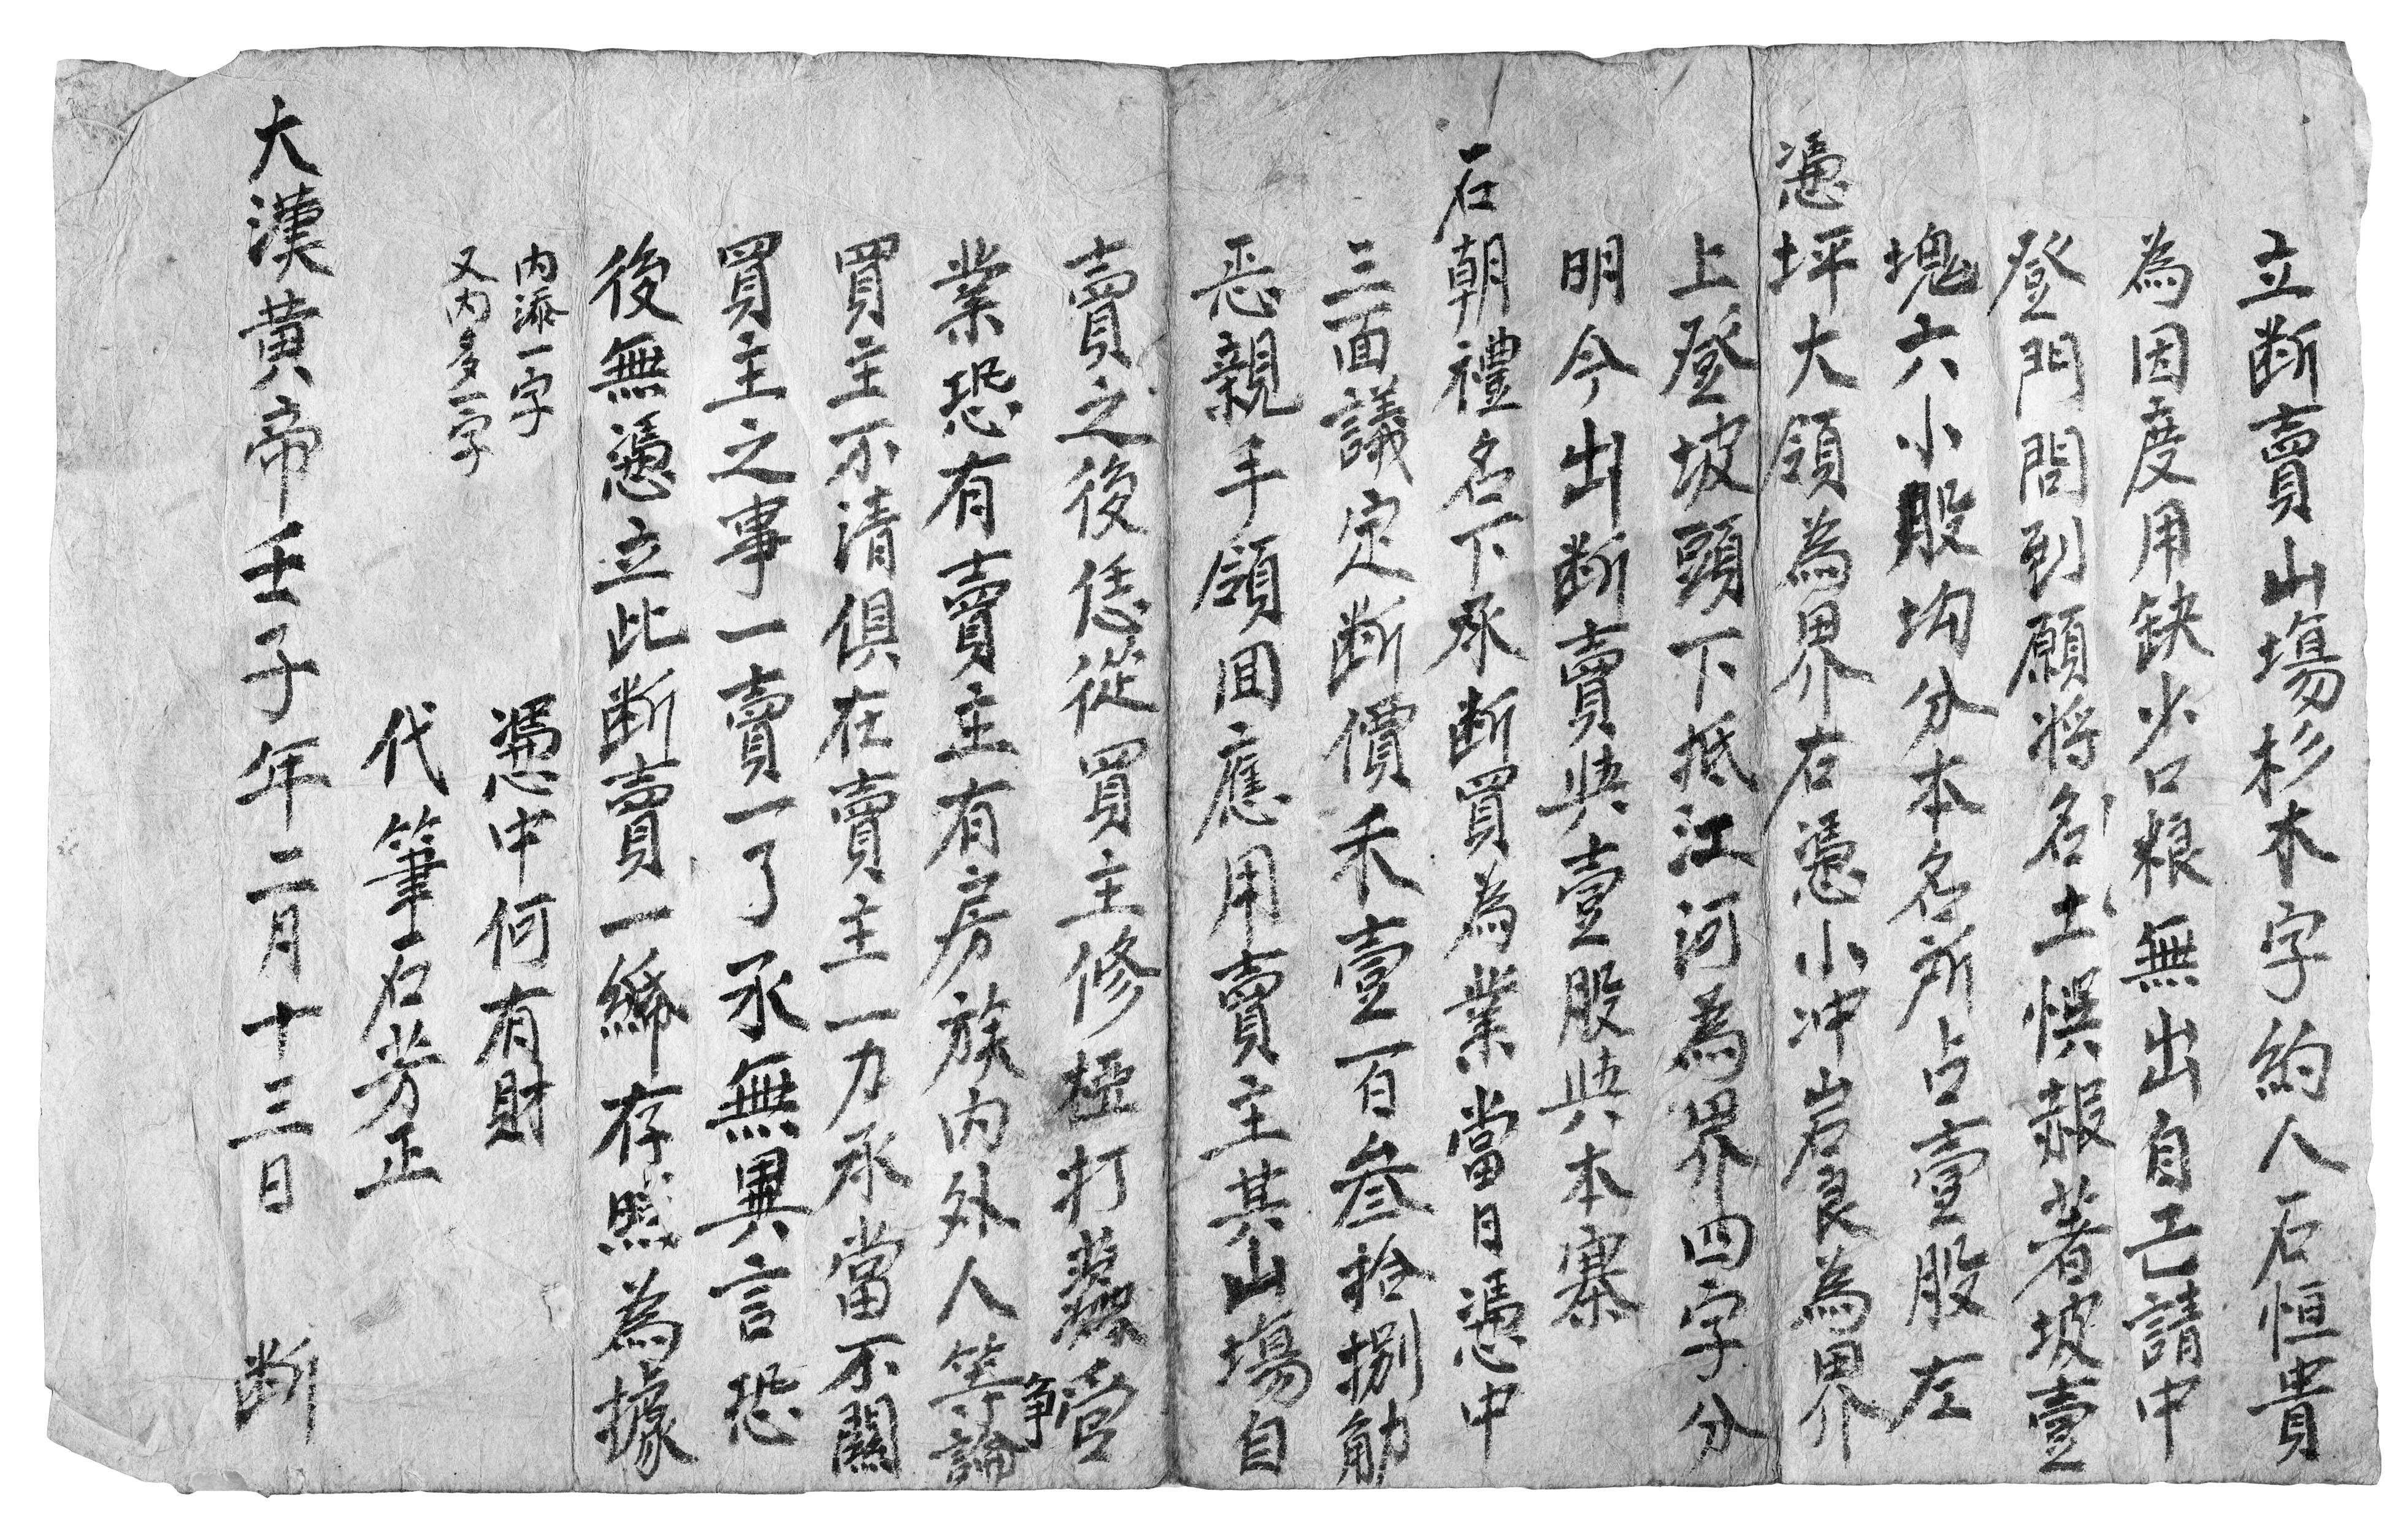 立断賣山塲杉木字約人石恒貴
為因度用缺少口粮無出自己請中
登門問到願将名土悮報著坡壹
塊六小股均分本名所占壹股左
憑坪大領為界右憑小冲岩良為界
上登坡頭下抵江河為界四字分
明今出断賣與壹股與本寨
石朝禮名下承断買為業當日憑中
三面議定断價禾壹百叁拾捌觔
恶親手領回應用賣主其山塲自
賣之後恁從買主修極打蓁營
業恐有賣主有房族内外人等争論
買主不清俱在賣主一力承當不關
買主之事一賣一了承無異言恐
後無憑立此断賣一絺存照為據
内添一字
又内多一字
憑中何有財
代筆石芳正
大漢黄帝壬子年二月十三日 断